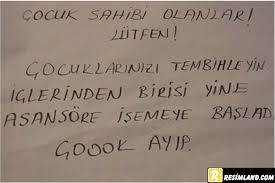 ÇOCUK SAHİBİ OLANLAR!
LÜTFEN!
ÇOCUKLARINIZI TEMBİHLEYİN
İÇLERİNDEN BİRİSİ YİNE
ASANSÖRE İŞEMEYE BAŞLAD
ÇOOOK AYIP.
RESIMLAND.COM